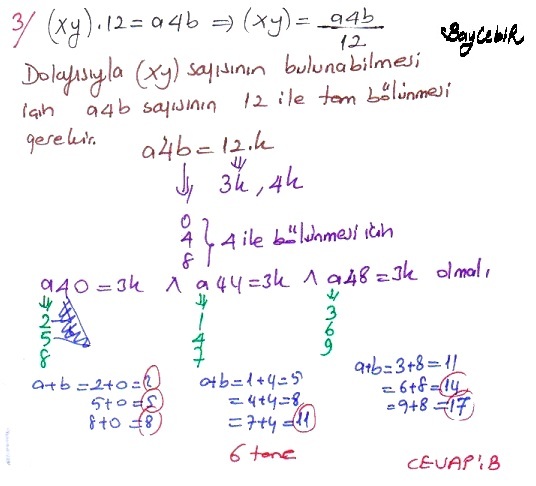 3/ (xy).12 = a4b ⇒ (xy) = a4b/12
BayCebiR
Dolayısıyla (xy) sayısının bulunabilmesi
için a4b sayısının 12 ile tam bölünmesi
gerekir.
a4b = 12.k
3k, 4k
0
4
8
} 4 ile bölünmesi için
a40 = 3k ∧ a44 = 3k ∧ a48 = 3k olmalı
2 1 3
5 4 6
8 7 9
a+b = 2+0 = 2
5+0 = 5
8+0 = 8
a+b = 1+4 = 5
= 4+4 = 8
= 7+4 = 11
a+b = 3+8 = 11
= 6+8 = 14
= 9+8 = 17
6 tane
CEVAP: B